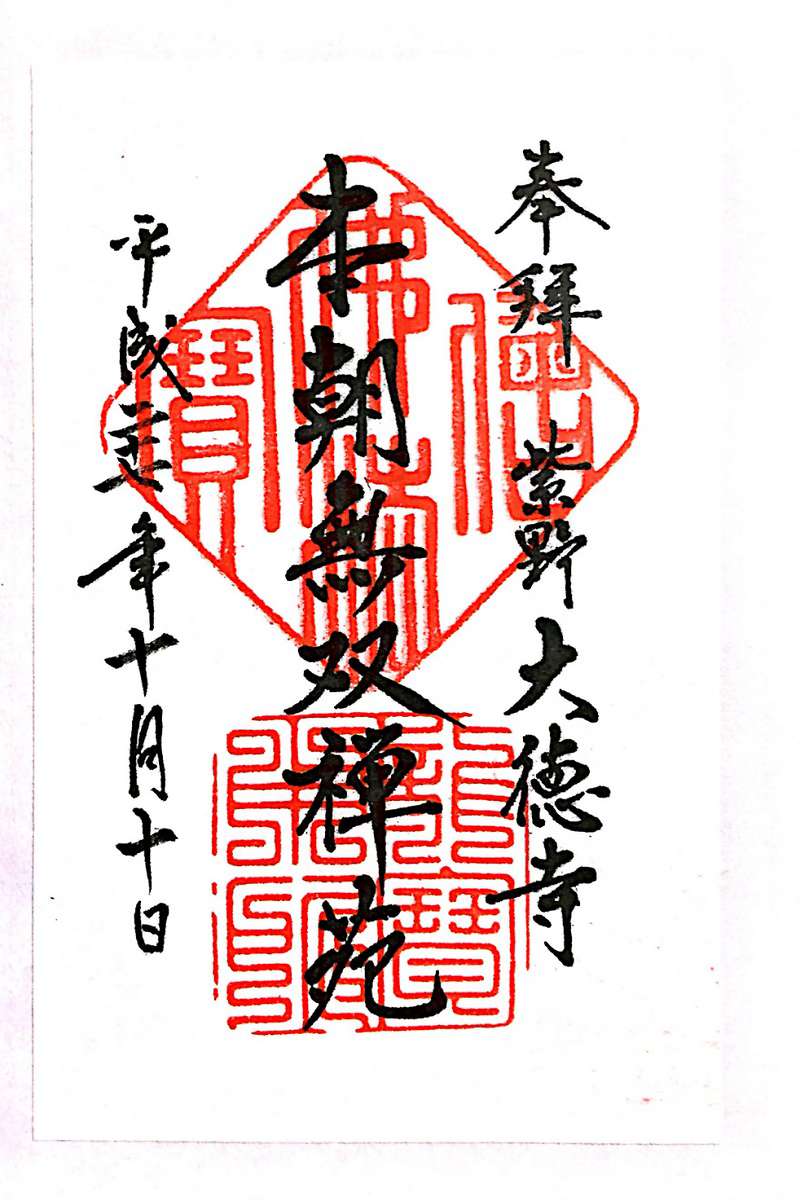 奉拝 紫野 大徳寺
本朝無双禅苑
平成 年十月十日
佛法僧寶